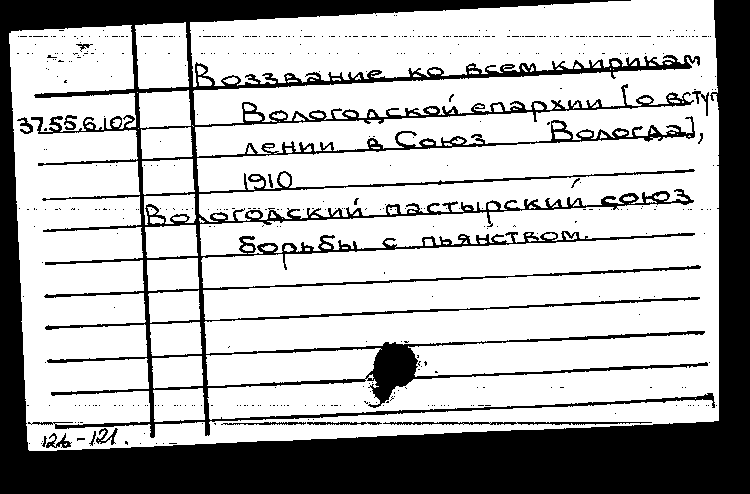 Воззвание ко всем клирикам
37.55.6.102 Вологодской епархии [о вступ
лении в Союз Вологда],
1910
Вологодский пастырский союз
борьбы с пьянством.
121.